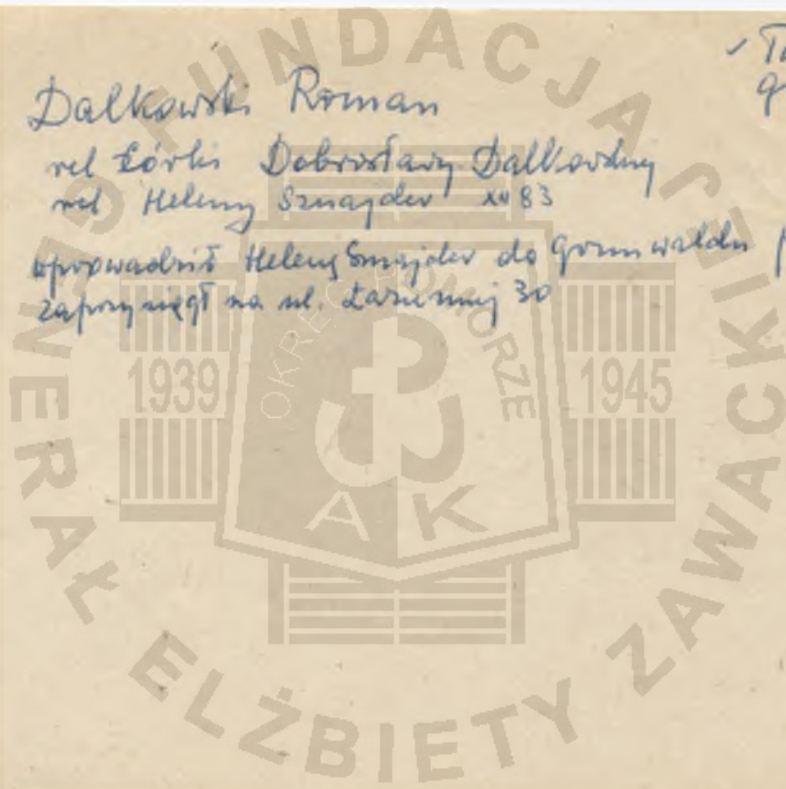 Dalkowski Roman
rel córki Dobrosławy Dalkowskiej
rel Heleny Sznajder XII 83
wprowadził Helenę Sznajder do Grunwaldu
zaprzysiągł na ul. Łaziennej 30
FUNDACJA GENERAŁ ELŻBIETY ZAWACKIEJ
OKRĘG POMORZE
1939 1945
AK